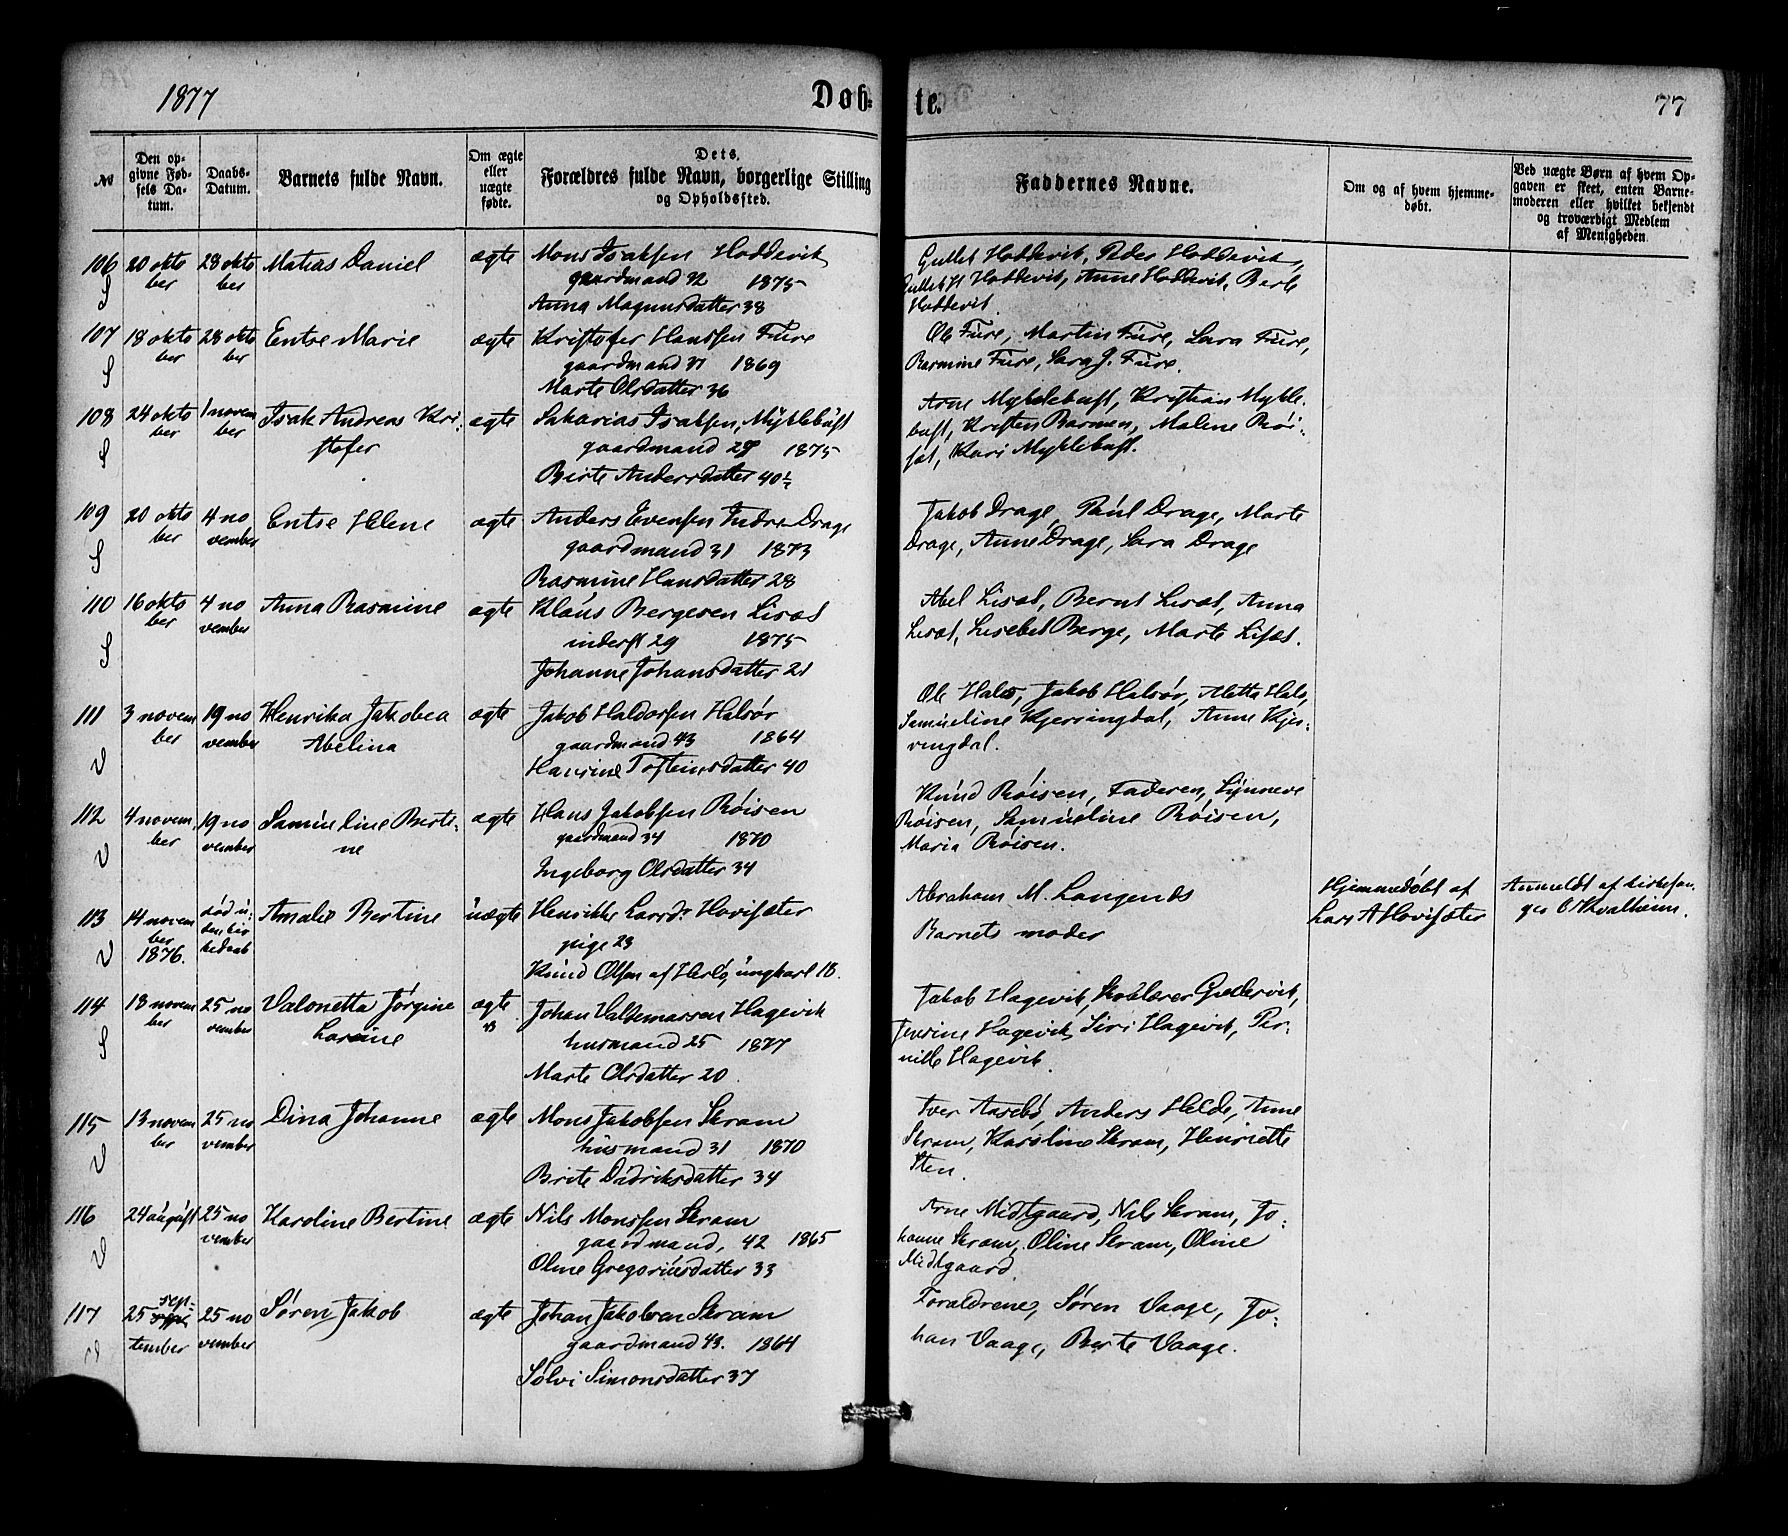 1877
Døb-
te.
77
№
Den op-
givne Fød-
sels Da-
tum.
Daabs-
Datum.
Barnets fulde Navn.
Om ægte
eller
uægte
fødte.
Dets
Forældres fulde Navn, borgerlige Stilling
og Opholdssted.
Faddernes Navne.
Om og af hvem hjemme-
døbt.
Ved uægte Børn af hvem Op-
gaven er skeet, enten Barne-
moderen eller hvilket bekjendt
og troværdigt Medlem
af Menigheden.
106 20 okto 28 okto Matias Daniel ægte Mons Isaksen Hoddevik
ber ber gaardmand 32 1875
S Anna Magnusdatter 38
Gullik Hoddevik, Peder Hoddevik,
Hoddevik, Anne Hoddevik, Berte
Hoddevik.
107 18 okto 28 okto Entse Marie ægte Kristofer Hansen Fure
ber ber gaardmand 37 1869
S Marte Olsdatter 36
Ole Fure, Martin Fure, Lara Fure,
Rasmine Fure, Sara J. Fure.
108 24 okto 1 novem Isak Andreas Kri- ægte Sakarias Isaksen, Myklebust
ber ber stofer gaardmand 29 1875
S Birte Andersdatter 40½
Arne Myklebust, Kristian Mykle-
bust, Kristen Barmen, Malene Røi-
sæt, Kari Myklebust.
109 20 okto 4 no Entse Helene ægte Anders Evensen Indre Drage
ber vember gaardmand 31 1873
S Rasmine Hansdatter 28
Jakob Drage, Paul Drage, Marte
Drage, Anne Drage, Sara Drage
110 16 okto 4 no Anna Rasmine ægte Klaus Bergesen Lisæt
ber vember inderst 29 1875
S Johanne Johansdatter 21
Abel Lisæt, Bernt Lisæt, Anna
Lisæt, Lisebet Berge, Marte Lisæt.
111 3 novem 19 no Henrika Jakobea ægte Jakob Haldorsen Halsør
ber vember Abelina gaardmand 43 1864
V Hansine Tosteinsdatter 40
Ole Hals, Jakob Halsør, Alette Hals,
Samueline Kjerringdal, Anne Kjer-
ringdal.
112 4 novem 19 no Samueline Berti- ægte Hans Jakobsen Røisen
ber vember ne gaardmand 34 1870
V Ingeborg Olsdatter 34
Knud Røisen, Faderen, Synneve
Røisen, Samueline Røisen,
Maria Røisen.
113 14 novem død u- Amalie Bertine uægte Henrikke Larsdr Hovisæter
ber den kir pige 23
1876. kedaab
V Knud Olsen af Herlø, ungkarl 18.
Abraham M. Langenæs
Barnets moder
Hjemmedøbt af
Lars A Hovisæter
Anmeldt af kirkesan-
ger O Kvalheim.
114 18 novem 25 no Valonetta Jørgine ægte Johan Valdemarsen Hagevik
ber vember Larsine husmand 25 1877
S Marte Olsdatter 20.
Jakob Hagevik, Skolelærer Gulesvik,
Jensine Hagevik, Siri Hagevik, Per-
nille Hagevik.
115 13 novem 25 no Dina Johanne ægte Mons Jakobsen Skram
ber vember husmand 31 1870
V Brite Didriksdatter 34
Iver Aarebø, Anders Helde, Anne
Skram, Karoline Skram, Henriette
Sten.
116 24 august 25 no Karoline Bertine ægte Nils Monssen Skram
vember gaardmand, 42 1865
V Oline Gregoriusdatter 33
Arne Midtgaard, Nils Skram, Jo-
hanne Skram, Oline Skram, Oline
Midtgaard.
117 25 sep- 25 no Søren Jakob ægte Johan Jakobsen Skram
tember vember gaardmand 43. 1864
Sølvi Simonsdatter 37
Forældrene, Søren Vaage, Jo-
han Vaage, Berte Vaage.